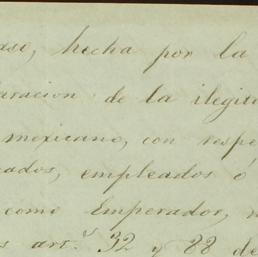 aso, hecha por la
aracion de la ilegiti
mexicano, con respe
eados, empleados ó
como Emperador, n
s artˢ 32 y 88 de